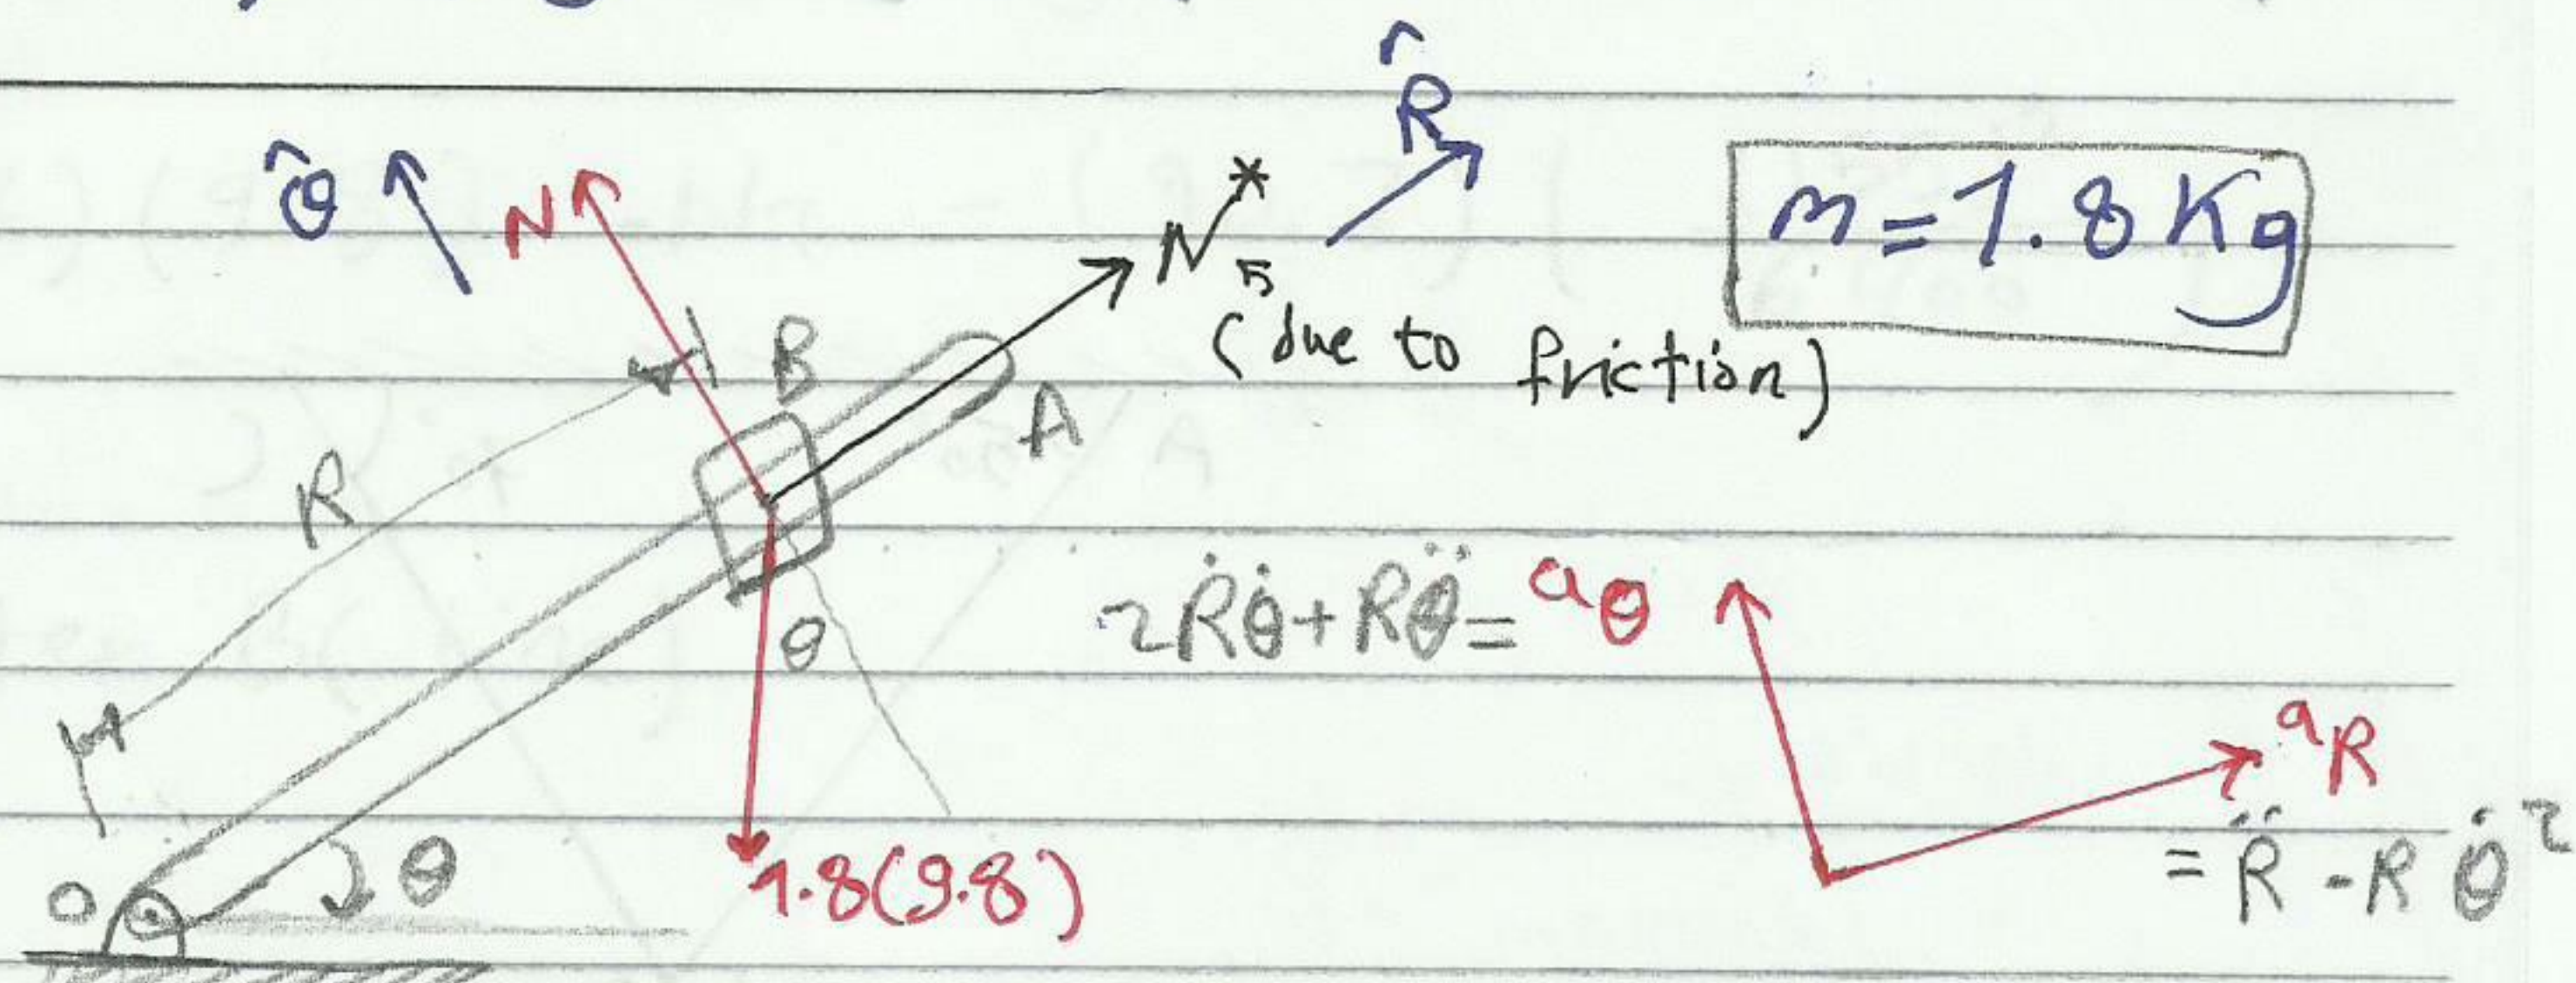 R̂
θ̂
N
N*
(due to friction)
m=1.8 Kg
B
A
R
θ
2Ṙθ̇+Rθ̈=aθ
aR
=R̈-Rθ̇²
1.8(9.8)
O
θ